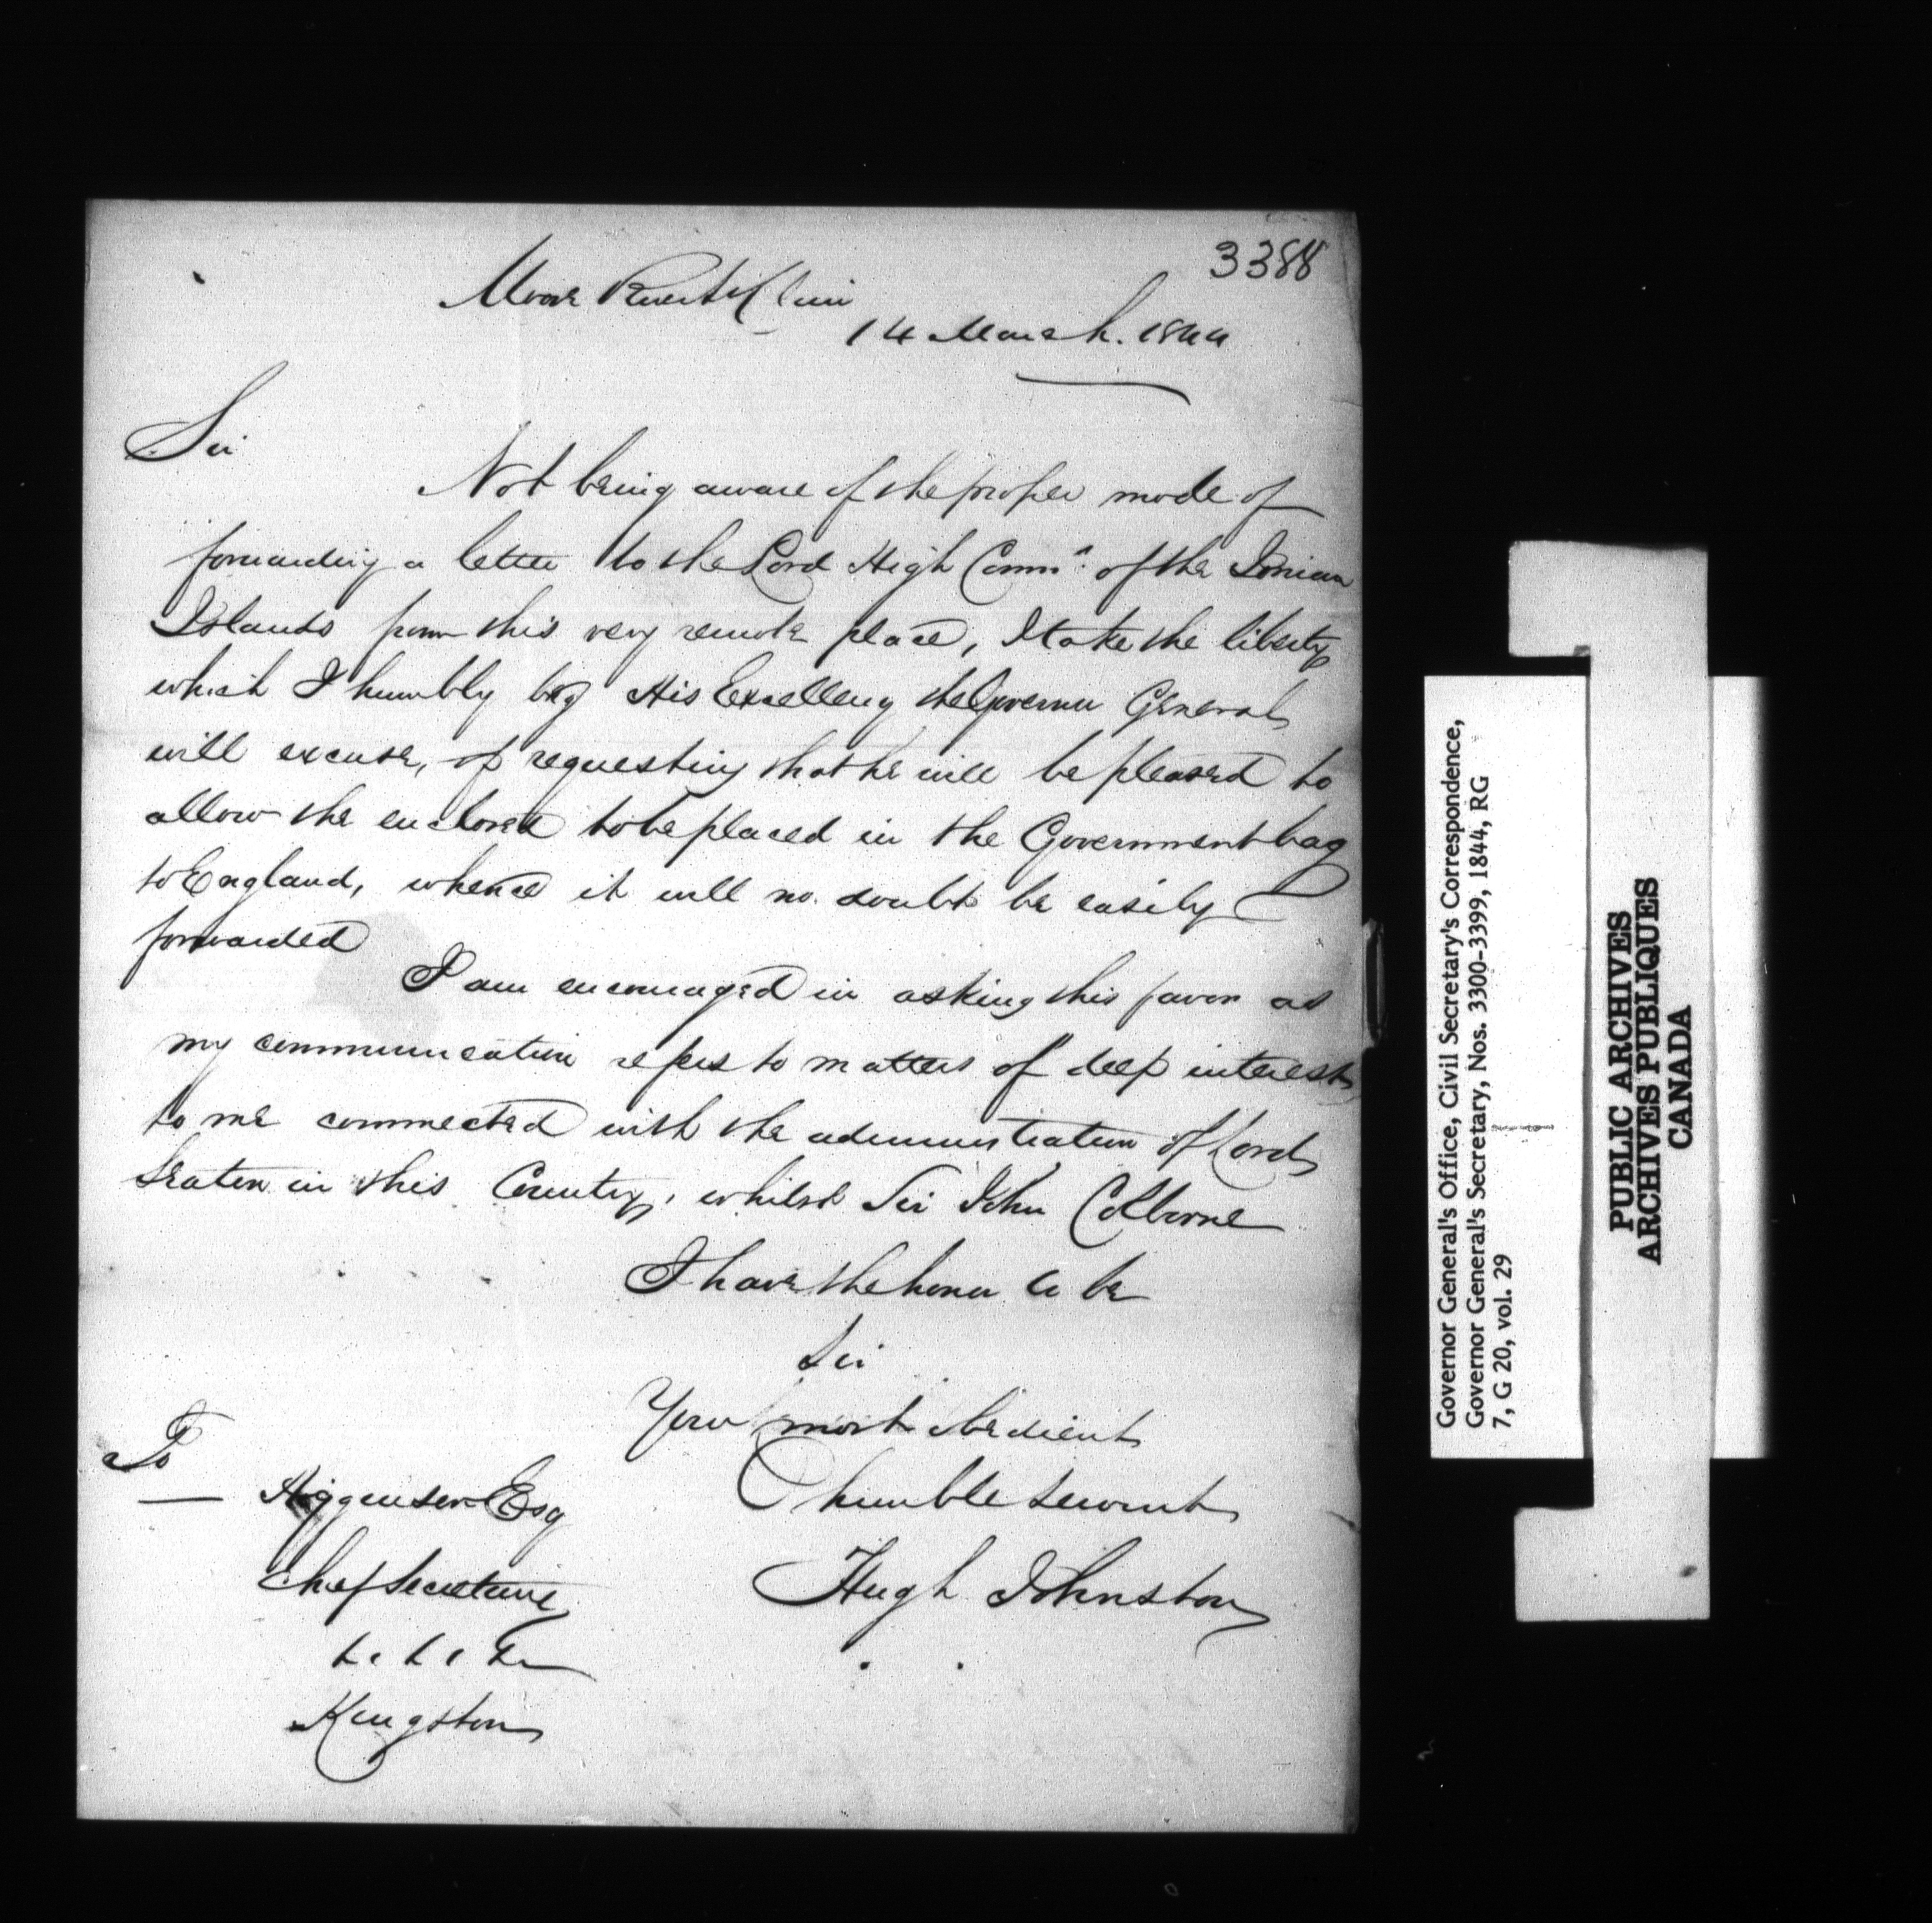 3388
Moore River St Clair
14 March. 1844
Sir
Not being aware of the proper mode of
forwarding a letter to the Lord High Commr. of the Ionian
Islands from this very remote place, I take the liberty
which I humbly beg His Excellency the Governor General
will excuse, of requesting that he will be pleased to
allow the enclosed to be placed in the Government bag
to England, whence it will no doubt be easily
forwarded
I am encouraged in asking this favor as
my communication refers to matters of deep interest
to me connected with the administration of Lord
Seaton in this Country, whilst Sir John Colborne
I have the honor to be
Sir
Your most obedient
humble servant
Hugh Johnston
To
— Higgenson Esq
Chief Secretary
&c &c &c
Kingston
Governor General's Office, Civil Secretary's Correspondence,
Governor General's Secretary, Nos. 3300-3399, 1844, RG
7, G 20, vol. 29
PUBLIC ARCHIVES
ARCHIVES PUBLIQUES
CANADA